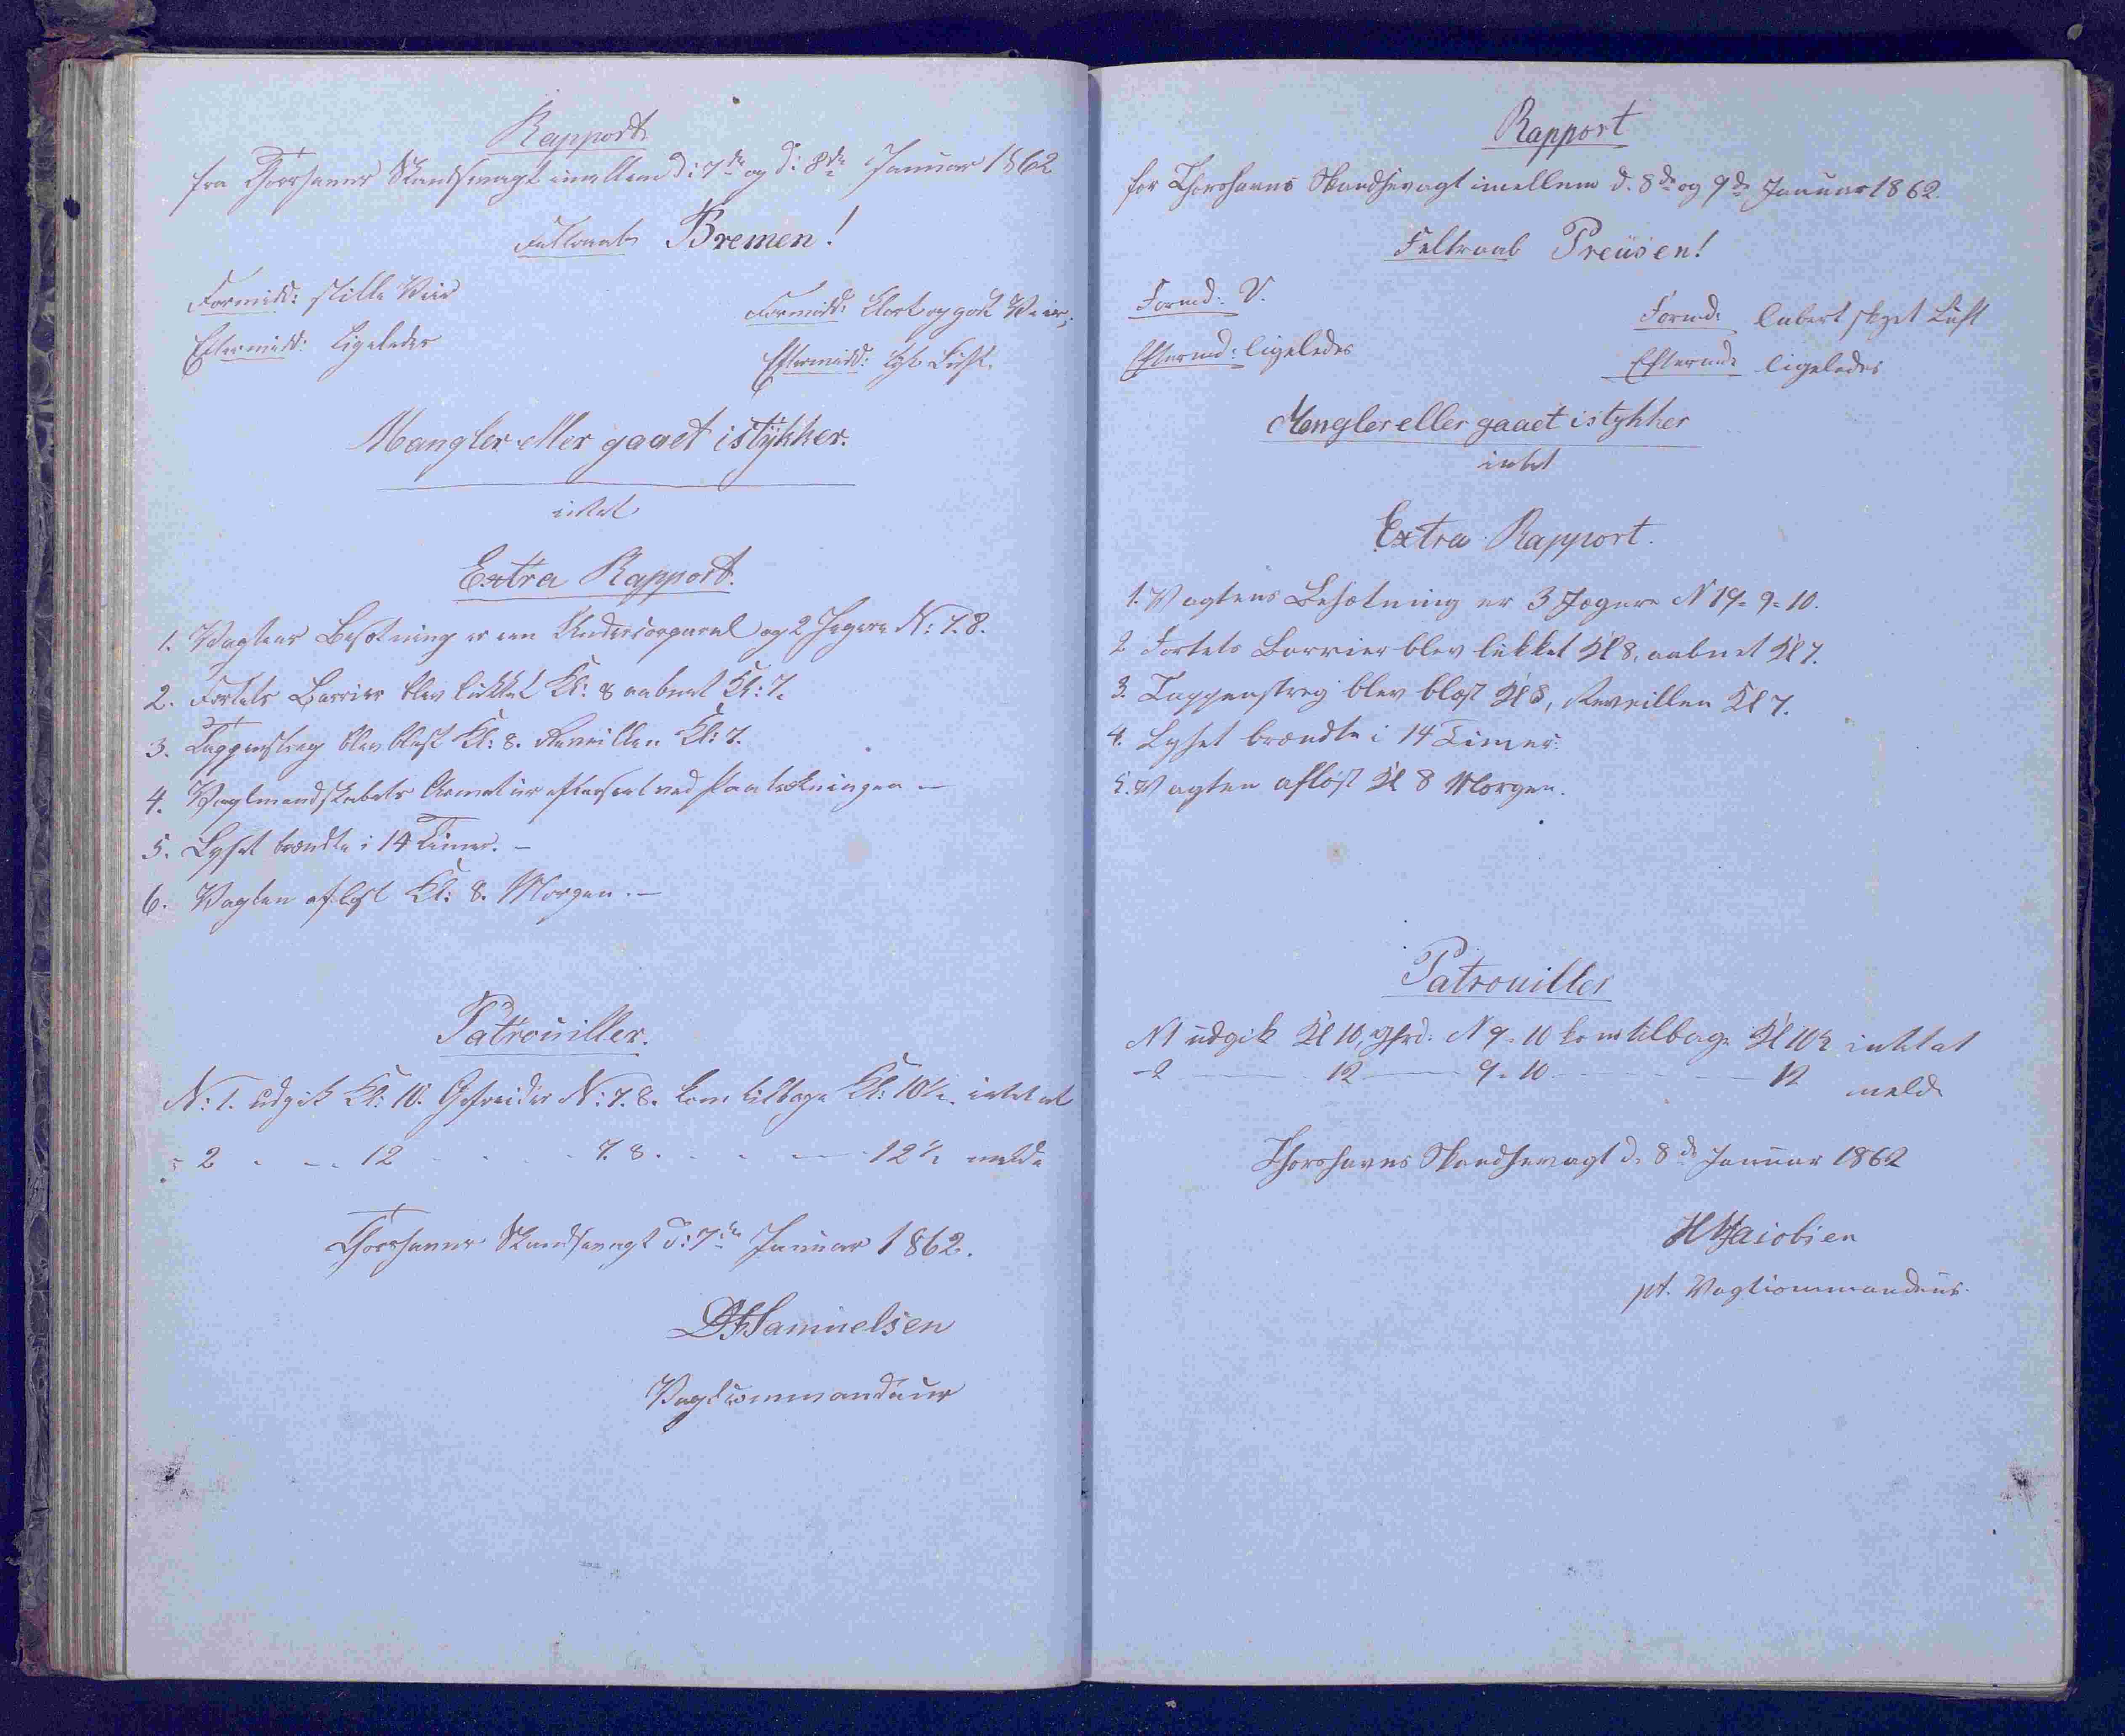 Rapport
fra Thorshavns Skandsevagt imellem d: 7de og d: 8de Januar 1862
Feltraab Bremen!
Formidd: stille Veir
Formidd: Klart og godt Veir,
Eftermidd: Ligeledes
Eftermidd: Luft.
Mangler eller gaaet istÿkker.
intet
Extra Rapport.
1. Vagtens Besætning er een Undercorporal og 2 Jegere N: 7.8.
2. Fortets Barrier blev lukket Kl: 8 aabnet Kl: 7.
3. Tappenstreg blev blæst Kl: 8. Reveillen Kl: 7.
4. Vagtmandskabets Armatur efterseet ved Paatrækningen —
5. Lyset brændte i 14 Timer. —
6. Vagten afløst Kl: 8. Morgen. —
Patrouiller.
N: 1. udgik Kl: 10. Gefreider N: 7.8. kom tilbage Kl: 10½. intet at
- 2 - - 12 - - - 7.8. - - - 12½ melde
Thorshavns Skandsevagt d: 7de Januar 1862.
Samuelsen
Vagtcommandeur
Rapport
for Thorshavns Skandsevagt imellem d. 8de og 9de Januar 1862.
Feltraab Preüsen!
Formd: V.
Formd: Luft
Eftermd: ligeledes
Eftermd: ligeledes
Mangler eller gaaet istykker
intet
Extra Rapport.
1. Vagtens Besætning er 3 Jægere N 19- 9- 10.
2 Fortets Barrier blev lukket Kl 8, aabnet Kl 7.
3. Tappenstreg blev blæst Kl 8, Reveillen Kl 7.
4. Lyset brændte i 14 Timer.
5. Vagten afløst Kl 8 Morgen.
Patrouiller
N1 udgik Kl 10, Gfrd: N 9- 10 kom tilbage Kl 10½ intet at
-2 — 12 — 9- 10 — 12 melde
Thorshavns Skandsevagt d. 8de Januar 1862
Jacobsen
pt. Vagtcommandeur.